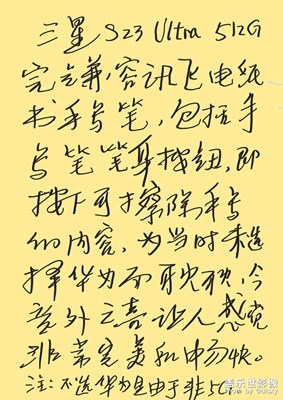 三星 S23 Ultra 512G
完全兼容讯飞电纸
书手写笔，包括手
写笔笔耳按钮，即
按下可擦除手写
的内容，为当时未选
择华为而耿耿，今
意外之喜让人感觉
非常完美和中意。
注：不选华为是由于非5G
盖乐世影像
Photo by Galaxy